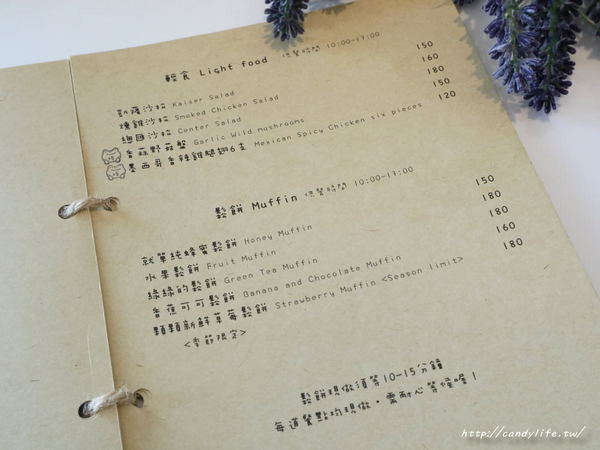 輕食 Light food 供餐時間 10:00-17:00
凱薩沙拉 Kaiser Salad 150
燻雞沙拉 Smoked Chicken Salad 160
總匯沙拉 Center Salad 180
香蒜野菇盤 Garlic Wild mushrooms 150
墨西哥香辣雞腿翅6支 Mexican Spicy Chicken six pieces 120
鬆餅 Muffin 供餐時間 10:00-17:00
就單純蜂蜜鬆餅 Honey Muffin 150
水果鬆餅 Fruit Muffin 180
綠綠的鬆餅 Green Tea Muffin 180
香蕉可可鬆餅 Banana and Chocolate Muffin 160
顆顆新鮮草莓鬆餅 Strawberry Muffin <Season limit> 180
<季節限定>
鬆餅現做須等10-15分鐘
每道餐點均現做，需耐心等候喔！
http://candylife.tw/